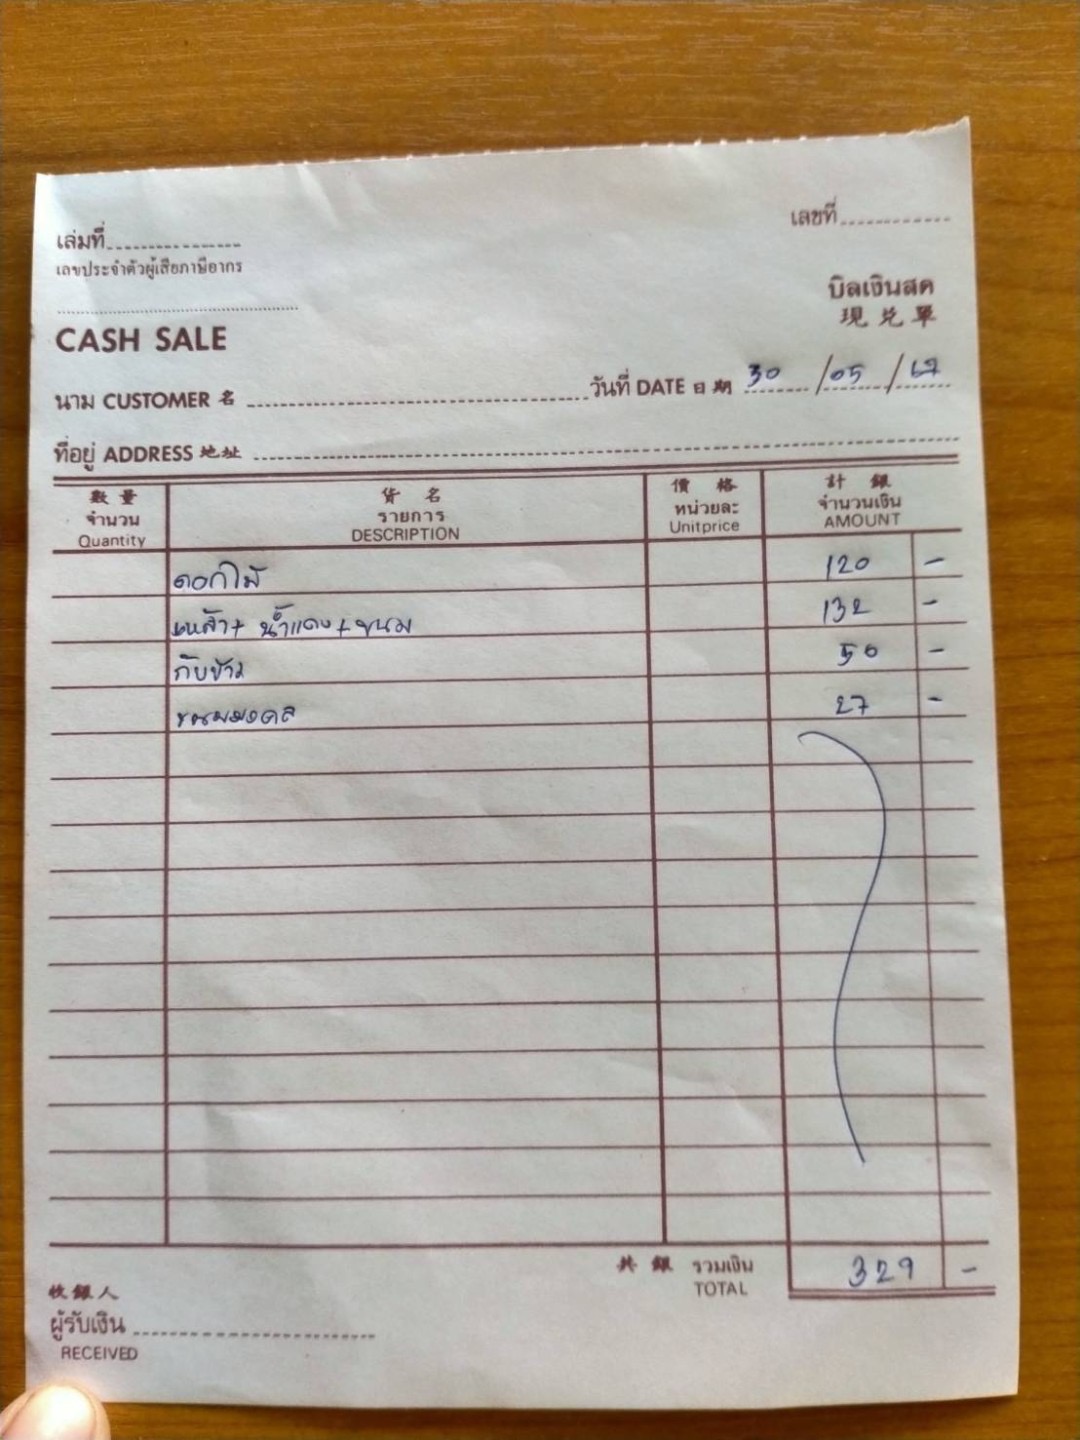 เล่มที่ เลขที่
เลขประจำตัวผู้เสียภาษีอากร
บิลเงินสด
現兌單
CASH SALE
นาม CUSTOMER 名 วันที่ DATE 日期 30 / 05 / 67
ที่อยู่ ADDRESS 地址
數量 貨名 價格 計銀
จำนวน รายการ หน่วยละ จำนวนเงิน
Quantity DESCRIPTION Unitprice AMOUNT
ดอกไม้ 120 -
เหล้า + น้ำแดง + ขนม 132 -
กับข้าว 50 -
ขนมมงคล 27 -
共銀 รวมเงิน 329 -
TOTAL
收銀人
ผู้รับเงิน
RECEIVED